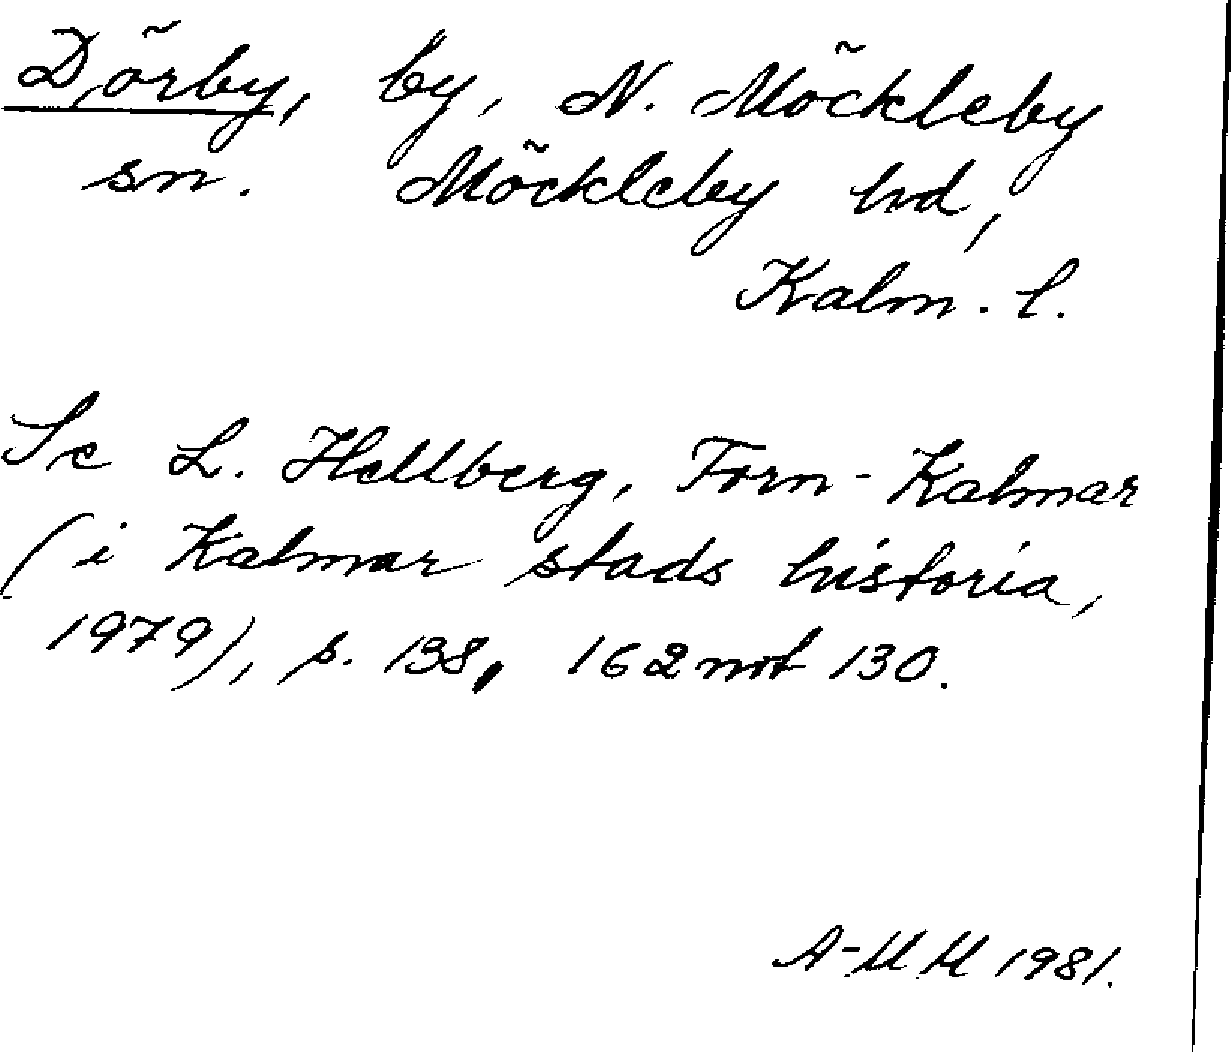 Dörby, by, N. Möckleby
sn. Möckleby hd,
Kalm. l.
Se L. Hellberg, Forn-Kalmar
(i Kalmar stads historia,
1979), s. 138, 162 not 130.
A-MH 1981.